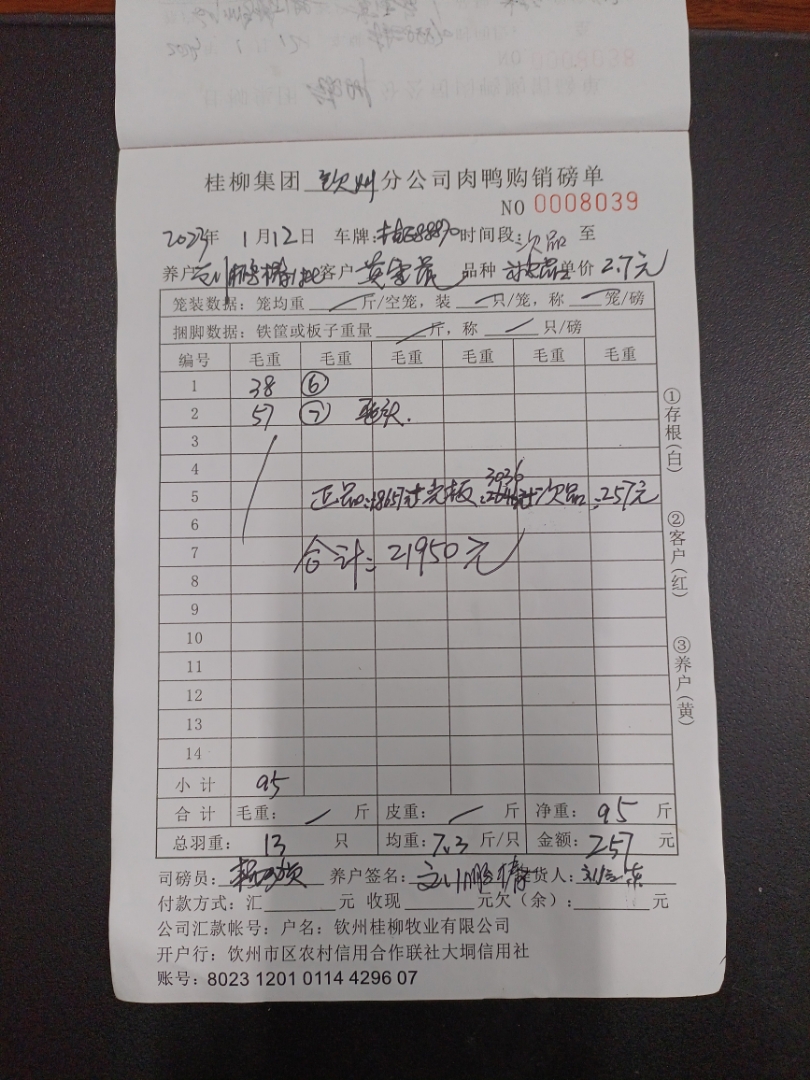 桂柳集团 钦州 分公司肉鸭购销磅单
NO 0008039
2023年 1月12日 车牌: 时间段: 次品 至
养户 客户 品种 单价 2.7元
笼装数据: 笼均重 斤/空笼, 装 只/笼, 称 笼/磅
捆脚数据: 铁筐或板子重量 斤, 称 只/磅
编号 毛重 毛重 毛重 毛重 毛重 毛重
1 38 ⑥
2 57 ⑦
3
4
3036
5 正品: 次品: 257元
6
7 合计: 21950元
8
9
10
11
12
13
14
小计 95
合计 毛重: 斤 皮重: 斤 净重: 95 斤
总羽重: 13 只 均重: 7.3 斤/只 金额: 257 元
司磅员: 养户签名: 货人:
付款方式: 汇 元 收现 元欠(余): 元
公司汇款帐号: 户名: 钦州桂柳牧业有限公司
开户行: 钦州市区农村信用合作联社大垌信用社
账号: 8023 1201 0114 4296 07
①存根(白)
②客户(红)
③养户(黄)